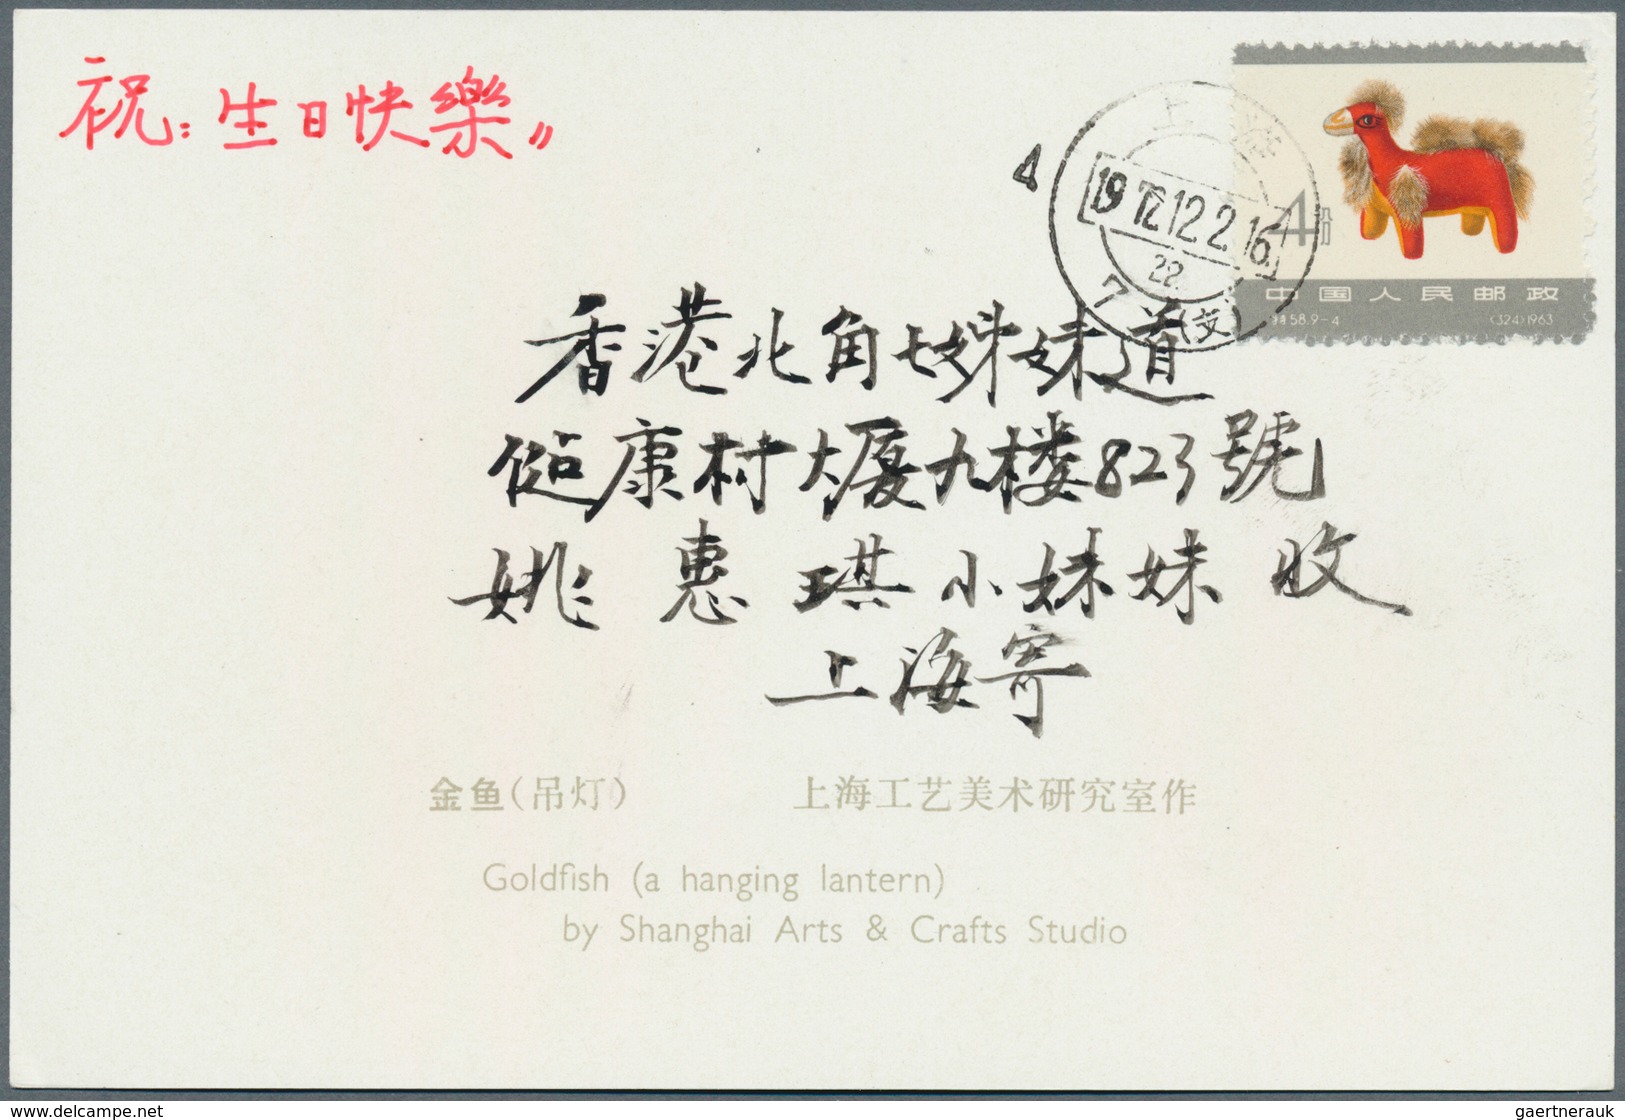 祝:生日快樂〃
4
上海
1972.12.2.16
22
7
(支)
4分
中国人民邮政
特58.9-4 (324)1963
香港北角七姊妹道
健康村大厦九楼823號
姚惠琪小妹妹收
上海寄
金鱼(吊灯) 上海工艺美术研究室作
Goldfish (a hanging lantern)
by Shanghai Arts & Crafts Studio
delcampe.net
gaertnerauk